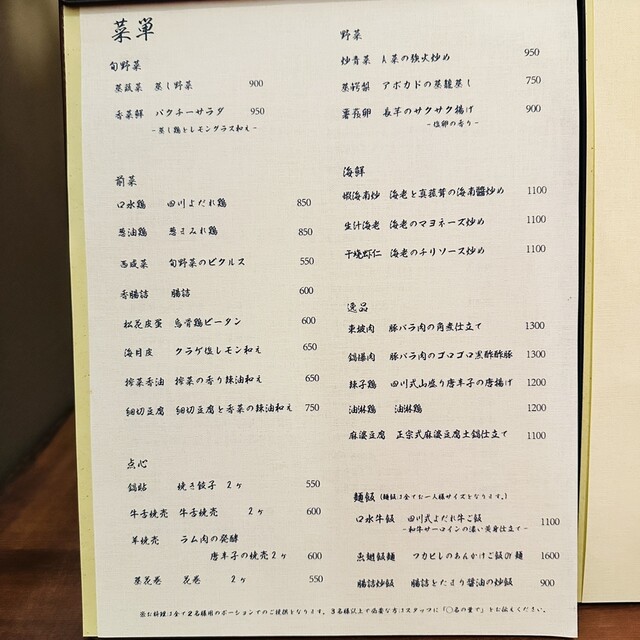 菜単
旬野菜
蒸蔬菜 蒸し野菜 900
香菜鮮 パクチーサラダ 950
-蒸し鶏とレモングラス和え-
前菜
口水鶏 四川よだれ鶏 850
葱油鶏 葱まみれ鶏 850
西咸菜 旬野菜のピクルス 550
香腸詰 腸詰 600
松花皮蛋 烏骨鶏ピータン 600
海月皮 クラゲ塩レモン和え 650
搾菜香油 搾菜の香り辣油和え 650
細切豆腐 細切豆腐と香菜の辣油和え 750
点心
鍋貼 焼き餃子 2ヶ 550
牛舌焼売 牛舌焼売 2ヶ 600
羊焼売 ラム肉の発酵
唐辛子の焼売2ヶ 600
蒸花巻 花巻 2ヶ 550
野菜
炒青菜 青菜の強火炒め 950
蒸鰐梨 アボカドの蒸籠蒸し 750
薯蕷卵 長芋のサクサク揚げ 900
-塩卵の香り-
海鮮
蝦海南炒 海老と真菰茸の海南醤炒め 1100
生汁海老 海老のマヨネーズ炒め 1100
干焼虾仁 海老のチリソース炒め 1100
逸品
東坡肉 豚バラ肉の角煮仕立て 1300
鍋爆肉 豚バラ肉のゴロゴロ黒酢酢豚 1300
辣子鶏 四川式山盛り唐辛子の唐揚げ 1200
油淋鶏 油淋鶏 1200
麻婆豆腐 正宗式麻婆豆腐土鍋仕立て 1100
麺飯 (麺飯は全てお一人様サイズとなります。)
口水牛飯 四川式よだれ牛ご飯 1100
-和牛サーロインの濃い黄身仕立て-
魚翅飯麺 フカヒレのあんかけご飯or麺 1600
腸詰炒飯 腸詰とたまり醤油の炒飯 900
※お料理は全て2名様用のポーションでのご提供となります。3名様以上で必要な方はスタッフに「〇名の量で」とお伝えください。